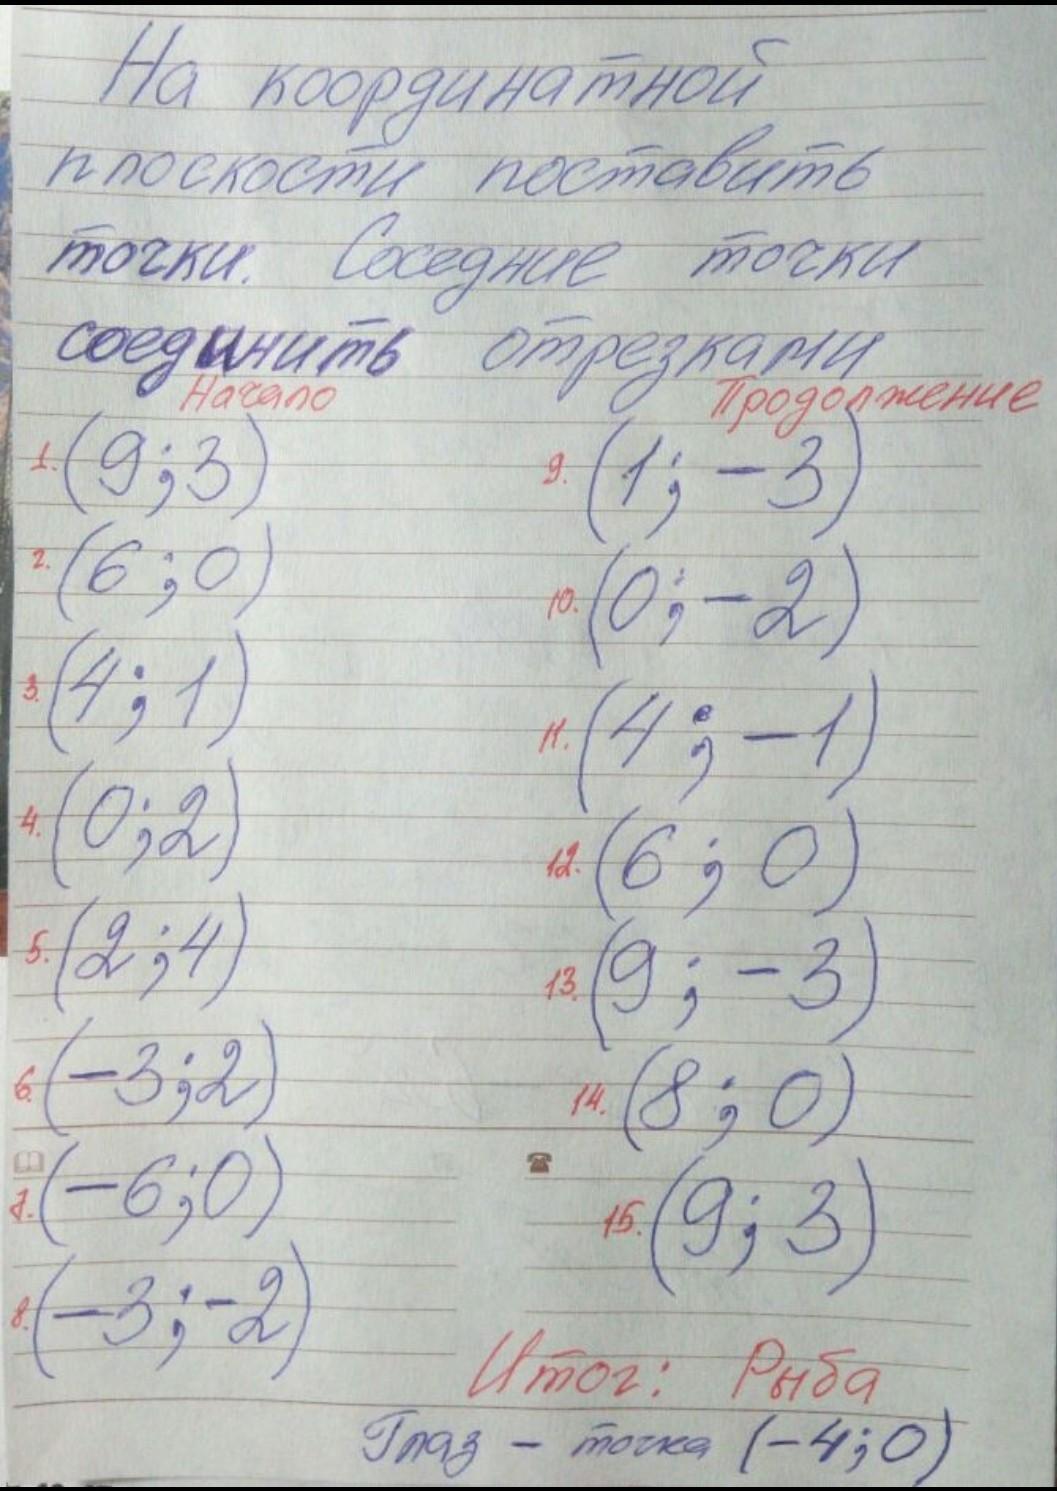 На координатной
плоскости поставить
точки. Соседние точки
соединить отрезками
Начало
1. (9;3)
2. (6;0)
3. (4;1)
4. (0;2)
5. (2;4)
6. (-3;2)
7. (-6;0)
8. (-3;-2)
Продолжение
9. (1;-3)
10. (0;-2)
11. (4;-1)
12. (6;0)
13. (9;-3)
14. (8;0)
15. (9;3)
Итог: Рыба
Глаз - точка (-4;0)